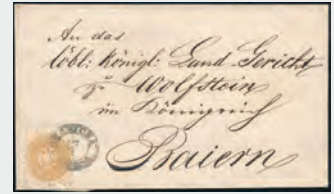 An das
löbl: Königl: Land Gericht
zu Wolfstein
im Königreich
Baiern